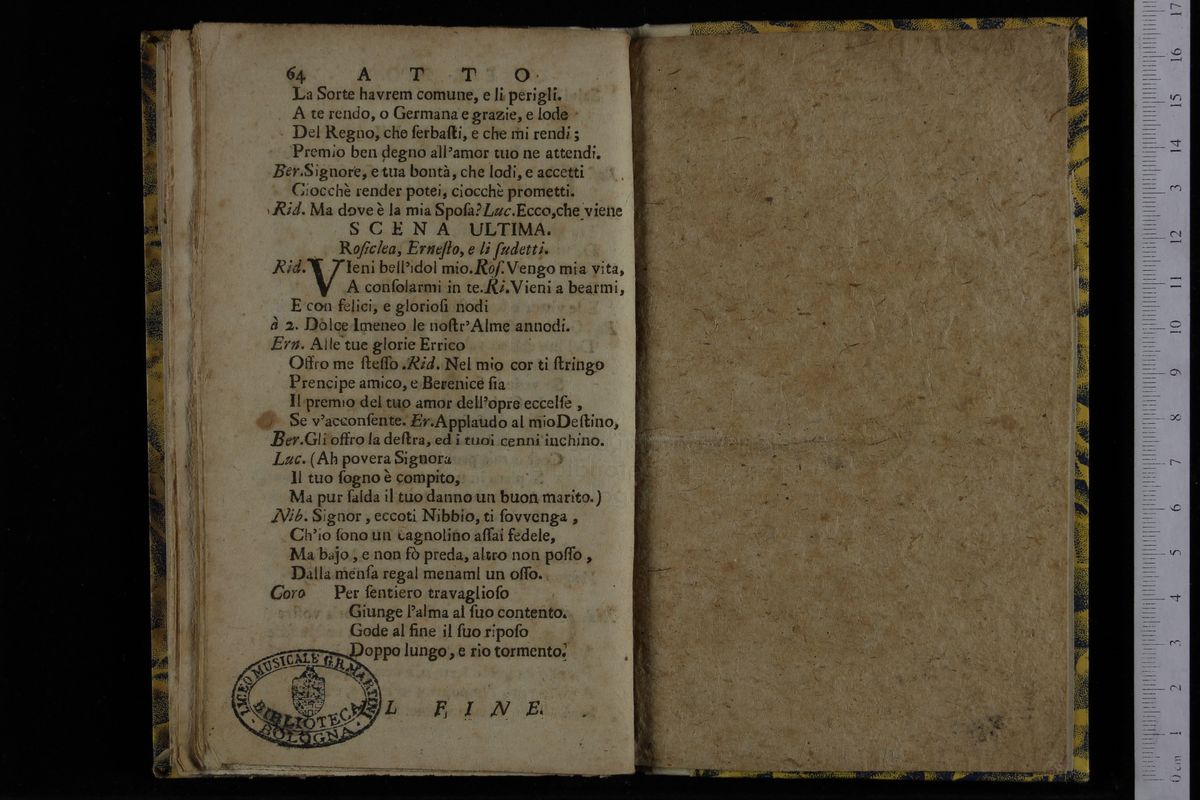 64 A T T O
La Sorte havrem comune, e li perigli.
A te rendo, o Germana e grazie, e lode
Del Regno, che ſerbaſti, e che mi rendi;
Premio ben degno all'amor tuo ne attendi.
Ber. Signore, e tua bontà, che lodi, e accetti
Ciocchè render potei, ciocchè prometti.
Rid. Ma dove è la mia Spoſa? Luc. Ecco, che viene
SCENA ULTIMA.
Roſiclea, Erneſto, e li ſudetti.
Rid. VIeni bell'idol mio. Roſ. Vengo mia vita,
A conſolarmi in te. Ri. Vieni a bearmi,
E con felici, e glorioſi nodi
à 2. Dolce Imeneo le noſtr'Alme annodi.
Ern. Alle tue glorie Errico
Offro me ſteſſo. Rid. Nel mio cor ti ſtringo
Prencipe amico, e Berenice ſia
Il premio del tuo amor dell'opre eccelſe,
Se v'acconſente. Er. Applaudo al mio Deſtino,
Ber. Gli offro la deſtra, ed i tuoi cenni inchino.
Luc. (Ah povera Signora
Il tuo ſogno è compito,
Ma pur ſalda il tuo danno un buon marito.)
Nib. Signor, eccoti Nibbio, ti ſovvenga,
Ch'io ſono un cagnolino aſſai fedele,
Ma bajo, e non fò preda, altro non poſſo,
Dalla menſa regal menaml un oſſo.
Coro Per ſentiero travaglioſo
Giunge l'alma al ſuo contento.
Gode al fine il ſuo ripoſo
Doppo lungo, e rio tormento.
L FINE.
LICEO MUSICALE G.B. MARTINI
BIBLIOTECA
BOLOGNA
0 cm 1 2 3 4 5 6 7 8 9 10 11 12 13 14 15 16 17